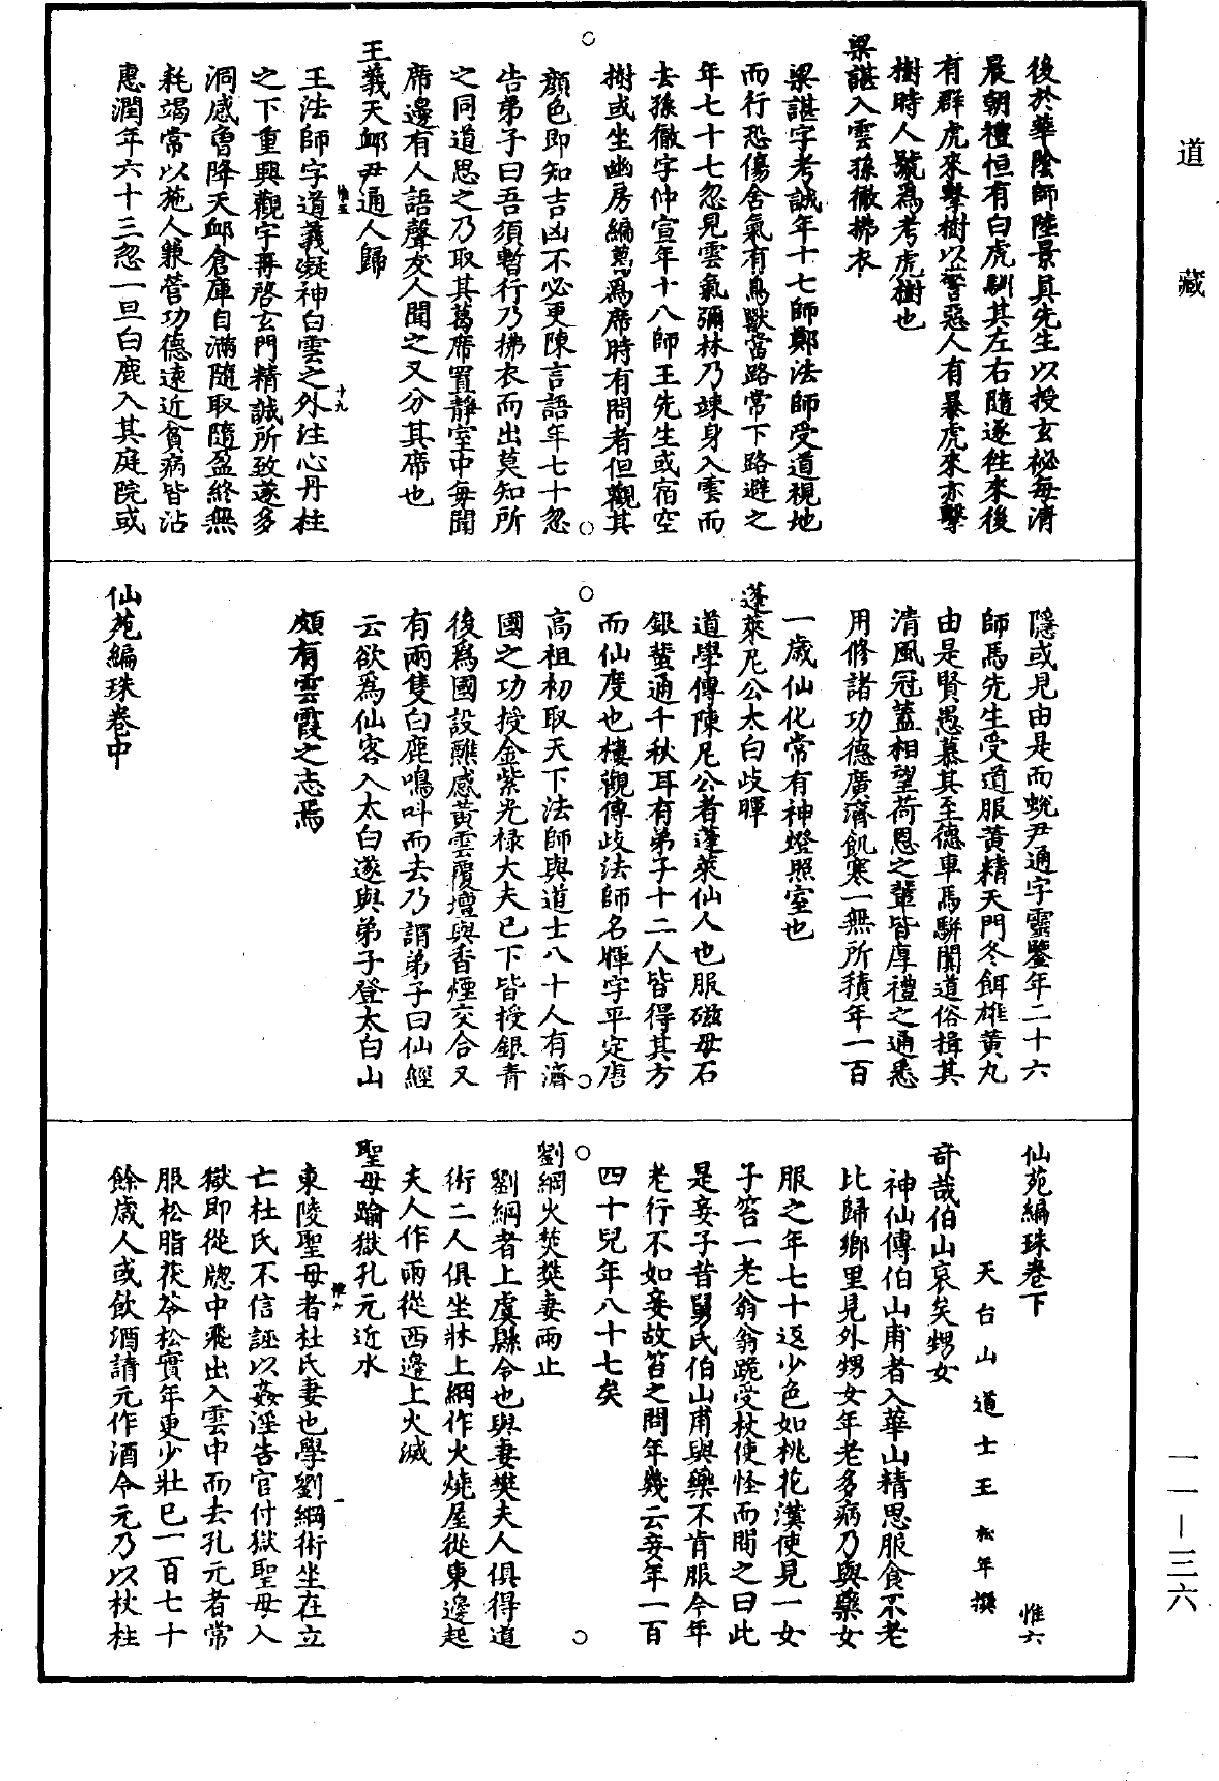 道藏
後於華陰師陸景真先生以授玄祕每清
晨朝禮恒有白虎馴其左右隨逐往來後
有群虎來擊樹以警惡人有暴虎來亦擊
樹時人號爲考虎樹也
梁諶入雲孫徹拂衣
梁諶字考誠年十七師鄭法師受道視地
而行恐傷含氣有鳥獸當路常下路避之
年七十七忽見雲氣彌林乃竦身入雲而
去孫徹字仲宣年十八師王先生或宿空
樹或坐幽房編蒿爲席時有問者但觀其
顏色即知吉凶不必更陳言語年七十忽
告弟子曰吾須暫行乃拂衣而出莫知所
之同道思之乃取其葛席置靜室中每聞
席邊有人語聲友人聞之又分其席也
王義天邮尹通人歸
惟五
王法師字道義凝神白雲之外注心丹柱
十九
之下重興觀宇再啓玄門精誠所致遂多
洞感曾降天邮倉庫自滿隨取隨盈終無
耗竭常以施人兼營功德遠近貧病皆沾
惠潤年六十三忽一旦白鹿入其庭院或
隱或見由是而蛻尹通字靈鑒年二十六
師馬先生受道服黃精天門冬餌雄黃丸
由是賢愚慕其至德車馬駢闐道俗揖其
清風冠蓋相望荷恩之輩皆厚禮之通悉
用修諸功德廣濟飢寒一無所積年一百
一歲仙化常有神燈照室也
蓬萊尼公太白歧暉
道學傳陳尼公者蓬萊仙人也服磁母石
銀蜚通千秋耳有弟子十二人皆得其方
而仙度也樓觀傳歧法師名暉字平定唐
高祖初取天下法師與道士八十人有濟
國之功授金紫光祿大夫已下皆授銀青
後爲國設醮感黃雲覆壇與香煙交合又
有兩隻白鹿鳴叫而去乃謂弟子曰仙經
云欲爲仙客入太白遂與弟子登太白山
頗有雲霞之志焉
仙苑編珠卷中
仙苑編珠卷下
惟六
天台山道士王松年撰
奇哉伯山哀矣甥女
神仙傳伯山甫者入華山精思服食不老
比歸鄉里見外甥女年老多病乃與藥女
服之年七十返少色如桃花漢使見一女
子笞一老翁翁跪受杖使怪而問之曰此
是妾子昔舅氏伯山甫與藥不肯服今年
老行不如妾故笞之問年幾云妾年一百
四十兒年八十七矣
劉綱火焚樊妻雨止
劉綱者上虞縣令也與妻樊夫人俱得道
術二人俱坐牀上綱作火燒屋從東邊起
夫人作雨從西邊上火滅
聖母踰獄孔元近水
惟六
一
東陵聖母者杜氏妻也學劉綱術坐在立
亡杜氏不信誣以姦淫告官付獄聖母入
獄即從牕中飛出入雲中而去孔元者常
服松脂茯苓松實年更少壯已一百七十
餘歲人或飲酒請元作酒令元乃以杖柱
一一—三六